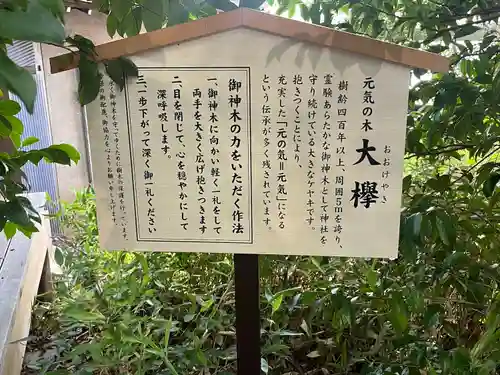 元気の木
大欅
おおけやき
樹齢四百年以上、周囲5mを誇り、
霊験あらたかな御神木として神社を
守り続けている大きなケヤキです。
抱きつくことにより、
充実した「元の気＝元気」になる
という伝承が多く残されています。
御神木の力をいただく作法
一、御神木に向かい一礼をして
両手を大きく広げ抱きつきます
二、目を閉じて、心を穏やかにして
深呼吸します。
三、一歩下がって深く御一礼ください